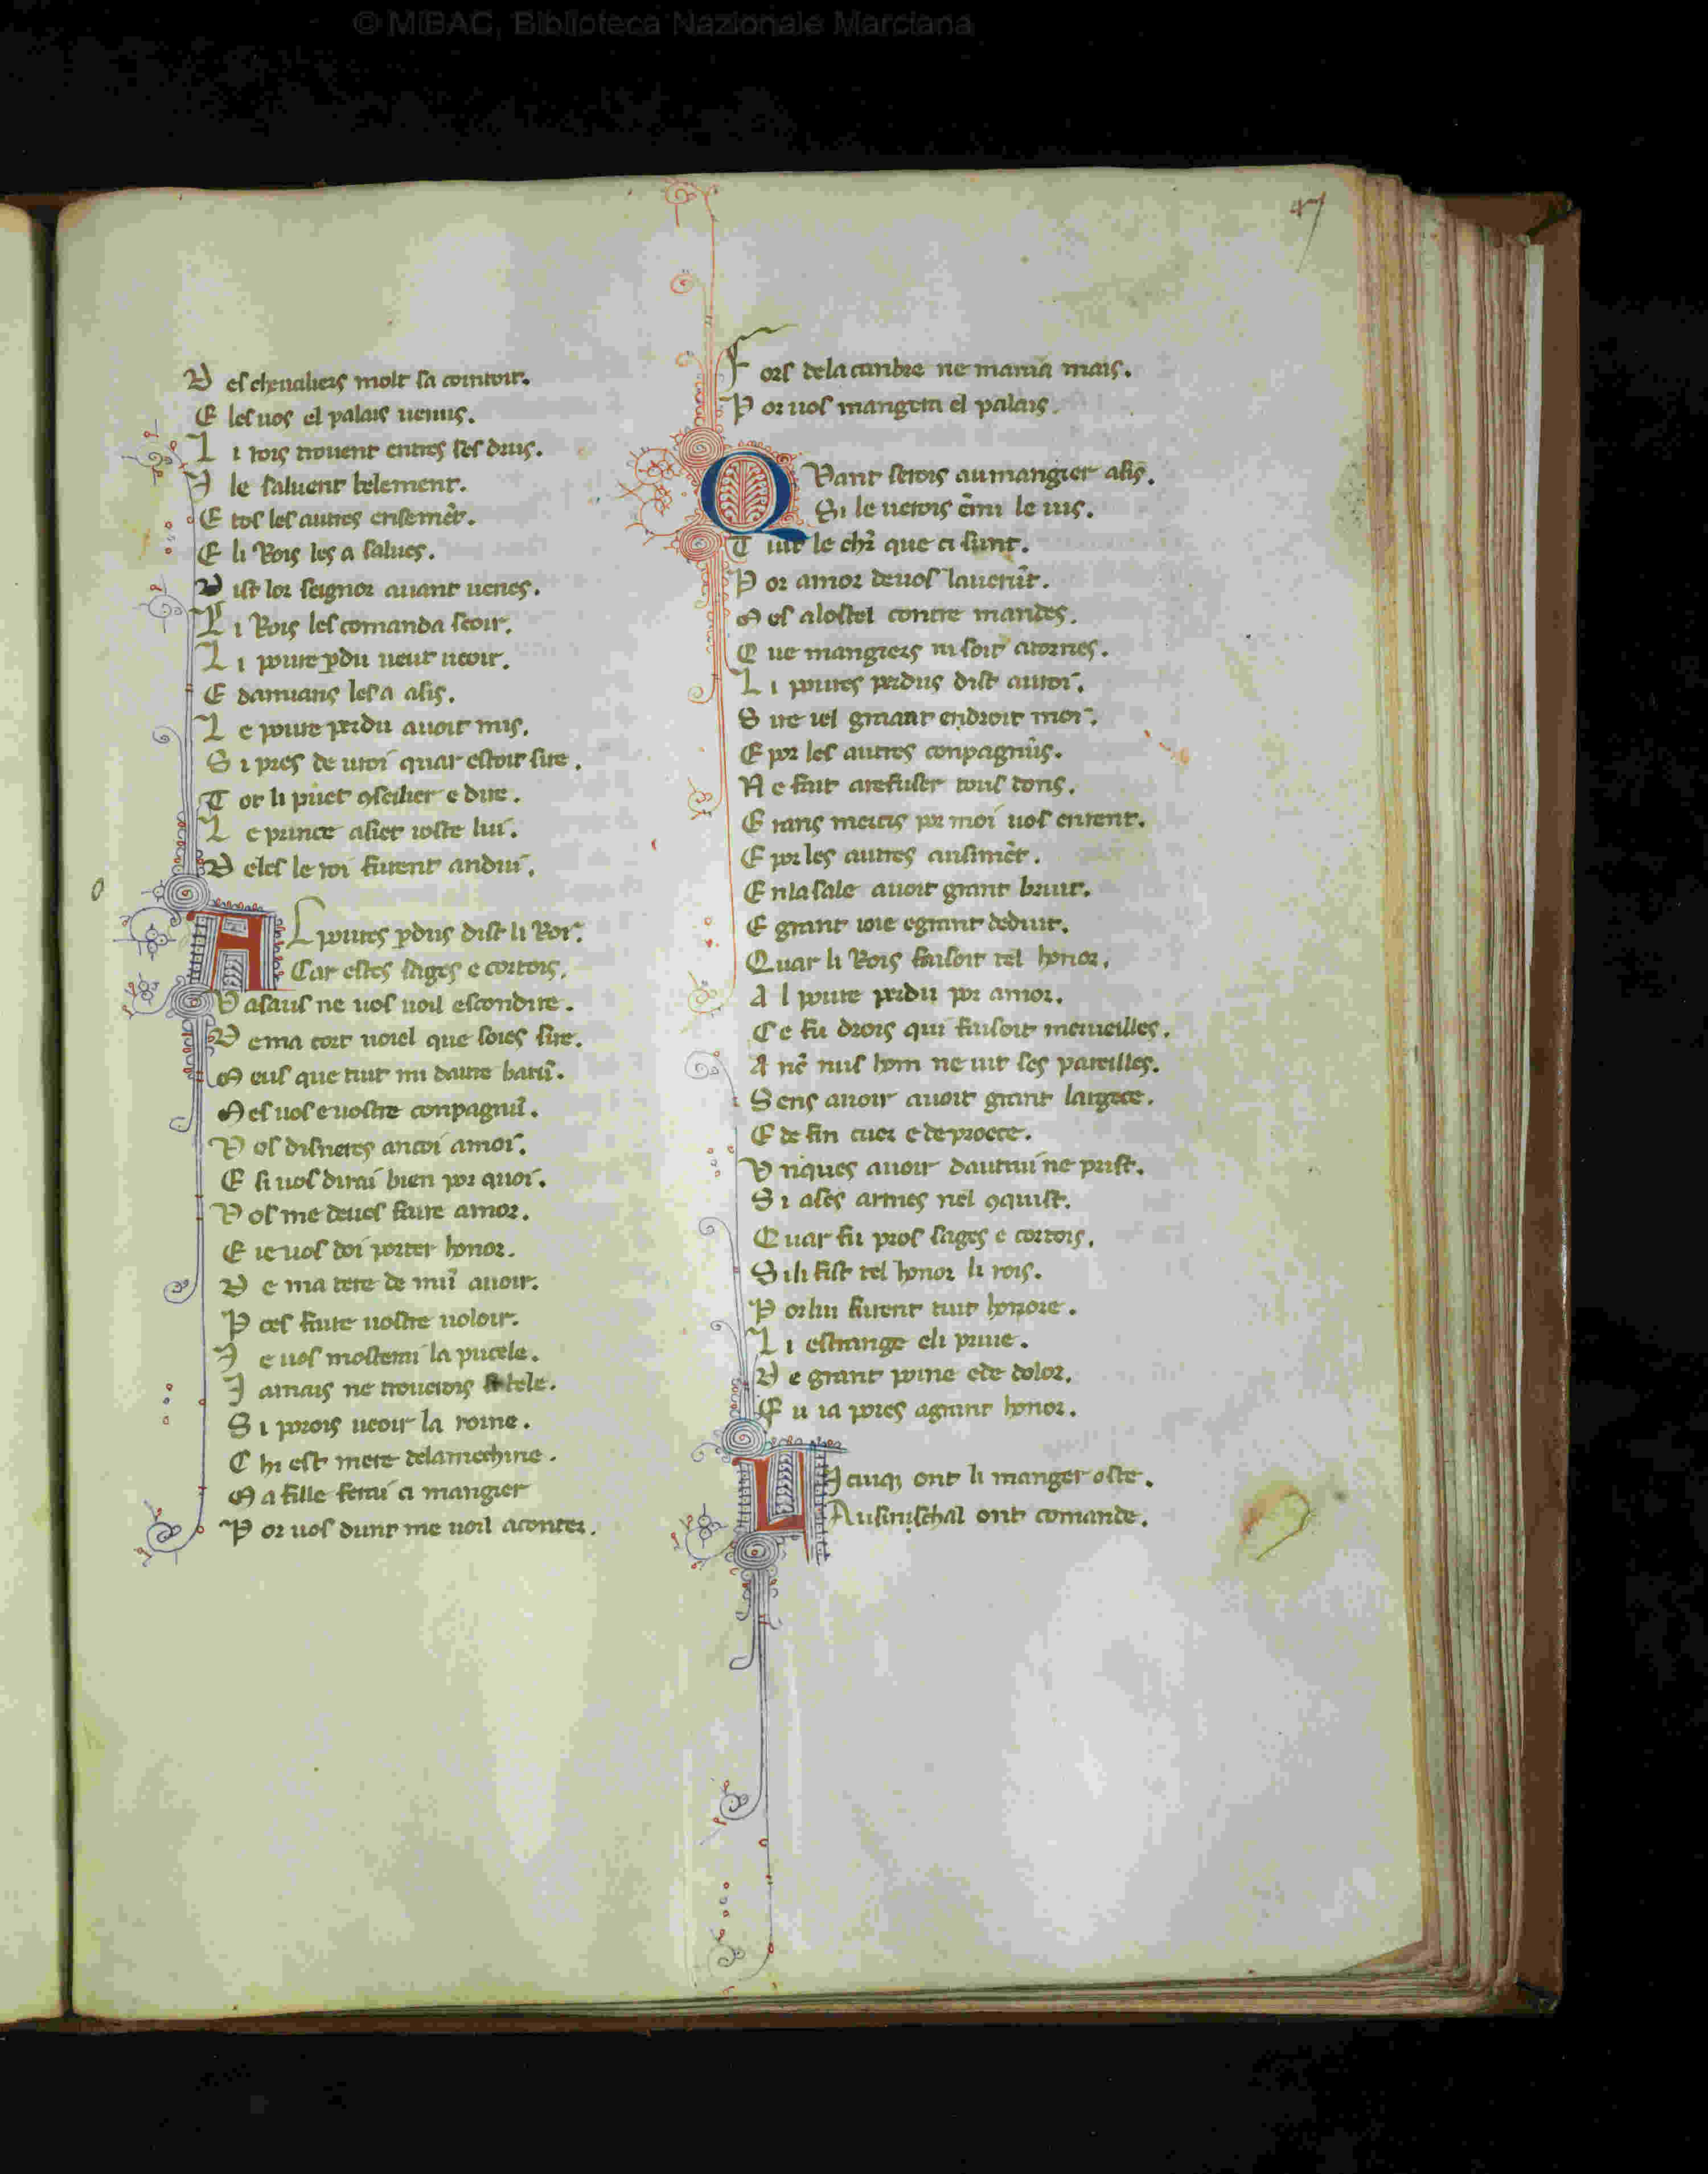 © MiBAC, Biblioteca Nazionale Marciana
47
D es cheualiers molt sa cointoit.
E les uos el palais uenus.
L i rois trouent entres ses drus.
I le saluent belement.
E tos les autres ensemēt.
E li Rois les a salues.
D ist lor seignor auant uenes.
L i Rois les comanda seoir.
L i poure ꝑdu ueut ueoir.
E damians les a asis.
L e poure perdu auoit mis.
S i pres de moi quar estoit sire.
T ot li puet ꝯseilier e dire.
L e prince asiet ioste lui.
D eles le roi furent andui.
A L poures ꝑdus dist li Roi.
Car estes sages e cortois.
V asaus ne uos uoil escondire.
D e ma cort uoiel que soies sire.
M eus que tuit mi dautre barū.
M es uos e uostre conpagnū.
V os disneres ancoi a moi.
E si uos dirai bien por quoi.
V os me deues faire amor.
E ie uos doi porter honor.
D e ma tere de mū auoir.
P oes faire uostre uoloir.
I e uos mosterai la pucele.
I amais ne trouerois si bele.
S i porois ueoir la roine.
C hi est mere de la mechine.
M a fille ferai ci mangier
P or uos dunt me uoil acointer.
F ors de la canbre ne mania mais.
P or uos mangera el palais.
Q Vant serois au mangier asis.
Si le uerois ēmi le uis.
T uit le chr̄ que ci sunt.
P or amor de uos lauerūt.
M es a lostel contre mandes.
Q ue mangiers ni soit atornes.
L i poures perdus dist au roi.
S ire iel graant endroit moi.
E por les autres conpagnūs.
N e fait a refuser tous dons.
G rans mercis por moi uos en rent.
E por les autres ausimēt.
E n la sale auoit grant bruit.
E grant ioie e grant deduit.
Q uar li Rois faisoit tel honor.
A l poure perdu por amor.
C e fu drois qui faisoit merueilles.
A nc̄ nus hom ne uit ses pareilles.
S ens auoir auoit grant largece.
E de fin cuer e de proece.
V nques auoir dautrui ne prist.
S i a ses armes nel ꝯquist.
Q uar fu pros sages e cortois.
S i li fist tel honor li rois.
P or lui furent tuit honore.
L i estrange e li priue.
D e grant poine e de dolor.
F u ia pores a grant honor.
L I cuiq; ont li manger oste.
Au sinischal ont comande.